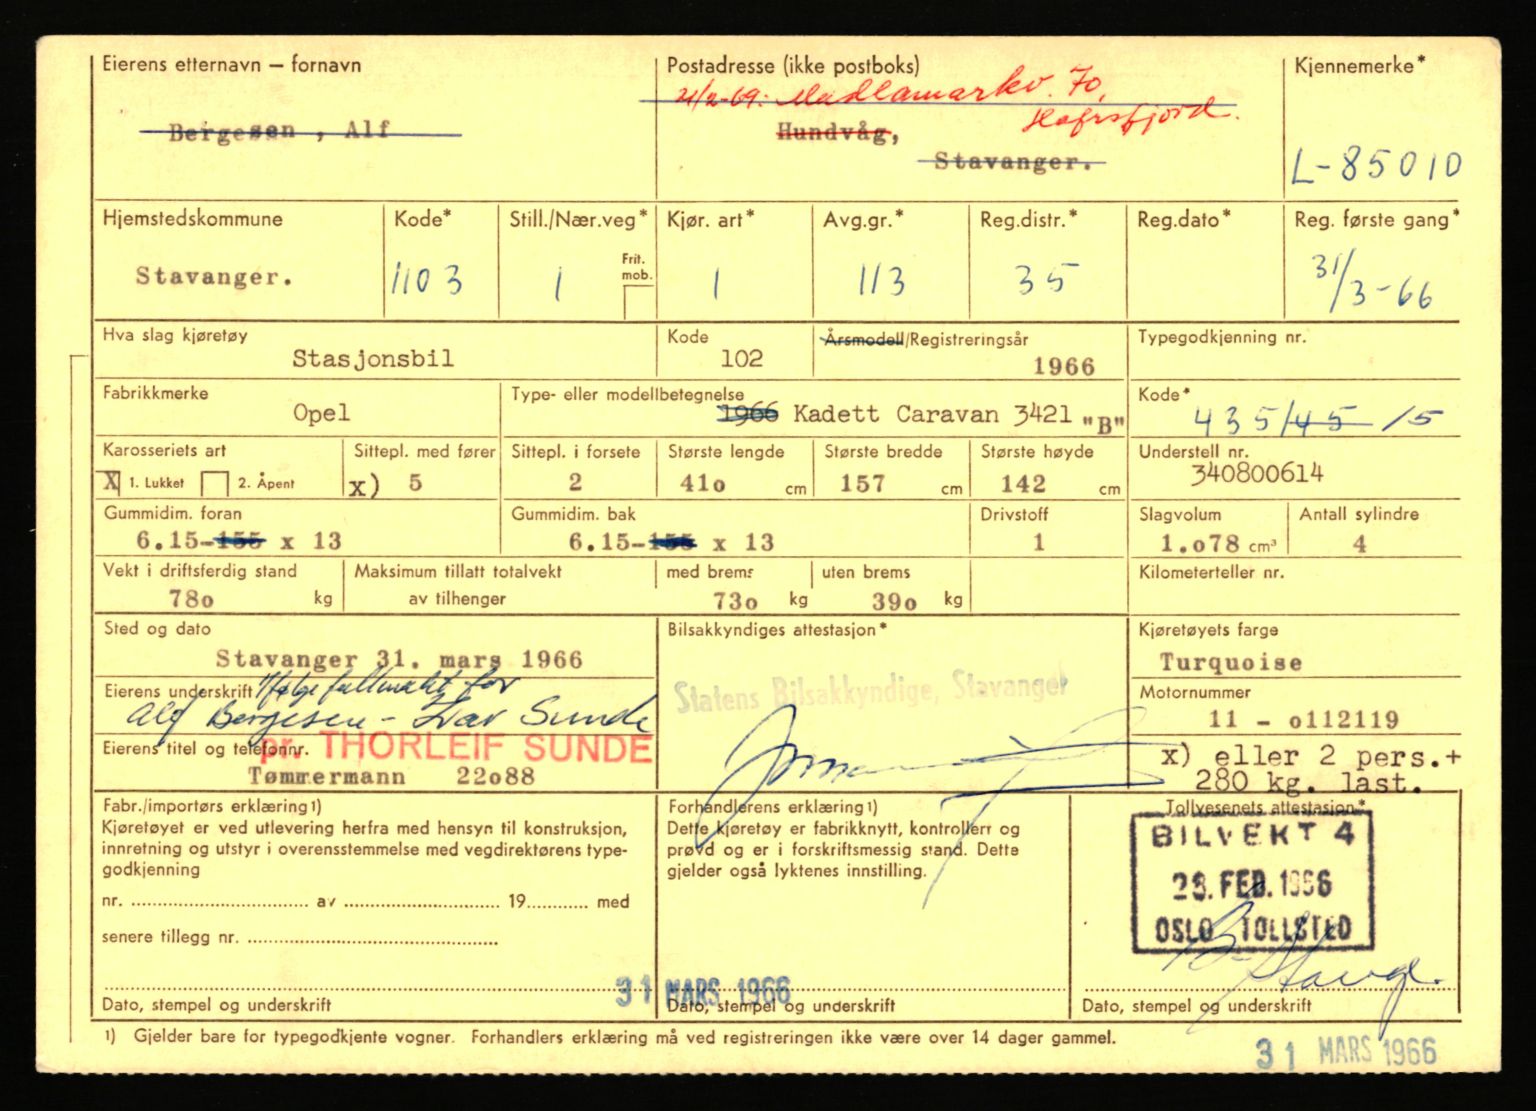 Eierens etternavn — fornavn
Postadresse (ikke postboks)
Kjennemerke*
21/2-69: Madlamarkv. 70,
Hafrsfjord.
Bergesen , Alf
Hundvåg,
Stavanger.
L-85010
Hjemstedskommune
Kode*
Still./Nær.veg*
Kjør. art*
Avg.gr.*
Reg.distr.*
Reg.dato*
Reg. første gang*
Frit.
mob.
Stavanger.
1103
1
1
113
35
31/3-66
Hva slag kjøretøy
Kode
Årsmodell/Registreringsår
Typegodkjenning nr.
Stasjonsbil
102
1966
Fabrikkmerke
Type- eller modellbetegnelse
Kode*
Opel
1966 Kadett Caravan 3421 "B"
435/45 /5
Karosseriets art
Sittepl. med fører
Sittepl. i forsete
Største lengde
Største bredde
Største høyde
Understell nr.
X 1. Lukket
2. Åpent
x) 5
2
41o cm
157 cm
142 cm
340800614
Gummidim. foran
Gummidim. bak
Drivstoff
Slagvolum
Antall sylindre
6.15-155 x 13
6.15-155 x 13
1
1.o78 cm³
4
Vekt i driftsferdig stand
Maksimum tillatt totalvekt
med brems
uten brems
Kilometerteller nr.
78o kg
av tilhenger
73o kg
39o kg
Sted og dato
Bilsakkyndiges attestasjon*
Kjøretøyets farge
Stavanger 31. mars 1966
Turquoise
Eierens underskrift
Ifølge fullmakt for
Statens Bilsakkyndige, Stavanger
Motornummer
Alf Bergesen - Ivar Sunde
11 - o112119
Eierens titel og telefonnr.
pr. THORLEIF SUNDE
x) eller 2 pers.+
Tømmermann 22o88
280 kg. last.
Fabr./importørs erklæring 1)
Forhandlerens erklæring 1)
Tollvesenets attestasjon*
Kjøretøyet er ved utlevering herfra med hensyn til konstruksjon,
innretning og utstyr i overensstemmelse med vegdirektørens type-
godkjenning
Dette kjøretøy er fabrikknytt, kontrollert og
prøvd og er i forskriftsmessig stand. Dette
gjelder også lyktenes innstilling.
BILVEKT 4
23. FEB. 1966
OSLO TOLLSTED
nr. .......... av .......... 19.......... med
senere tillegg nr. ..........
31 MARS 1966
Dato, stempel og underskrift
Dato, stempel og underskrift
Dato, stempel og underskrift
1) Gjelder bare for typegodkjente vogner. Forhandlers erklæring må ved registreringen ikke være over 14 dager gammel.
31 MARS 1966